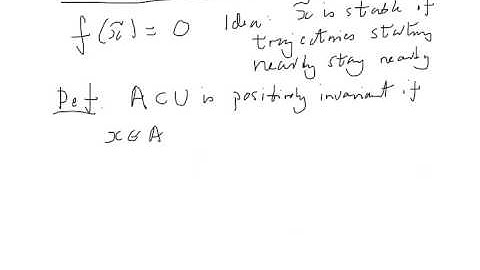 f(x̃) = 0 Idea: x̃ is stable if
trajectories starting
nearby stay nearby
Def. A ⊂ U is positively invariant if
x ∈ A